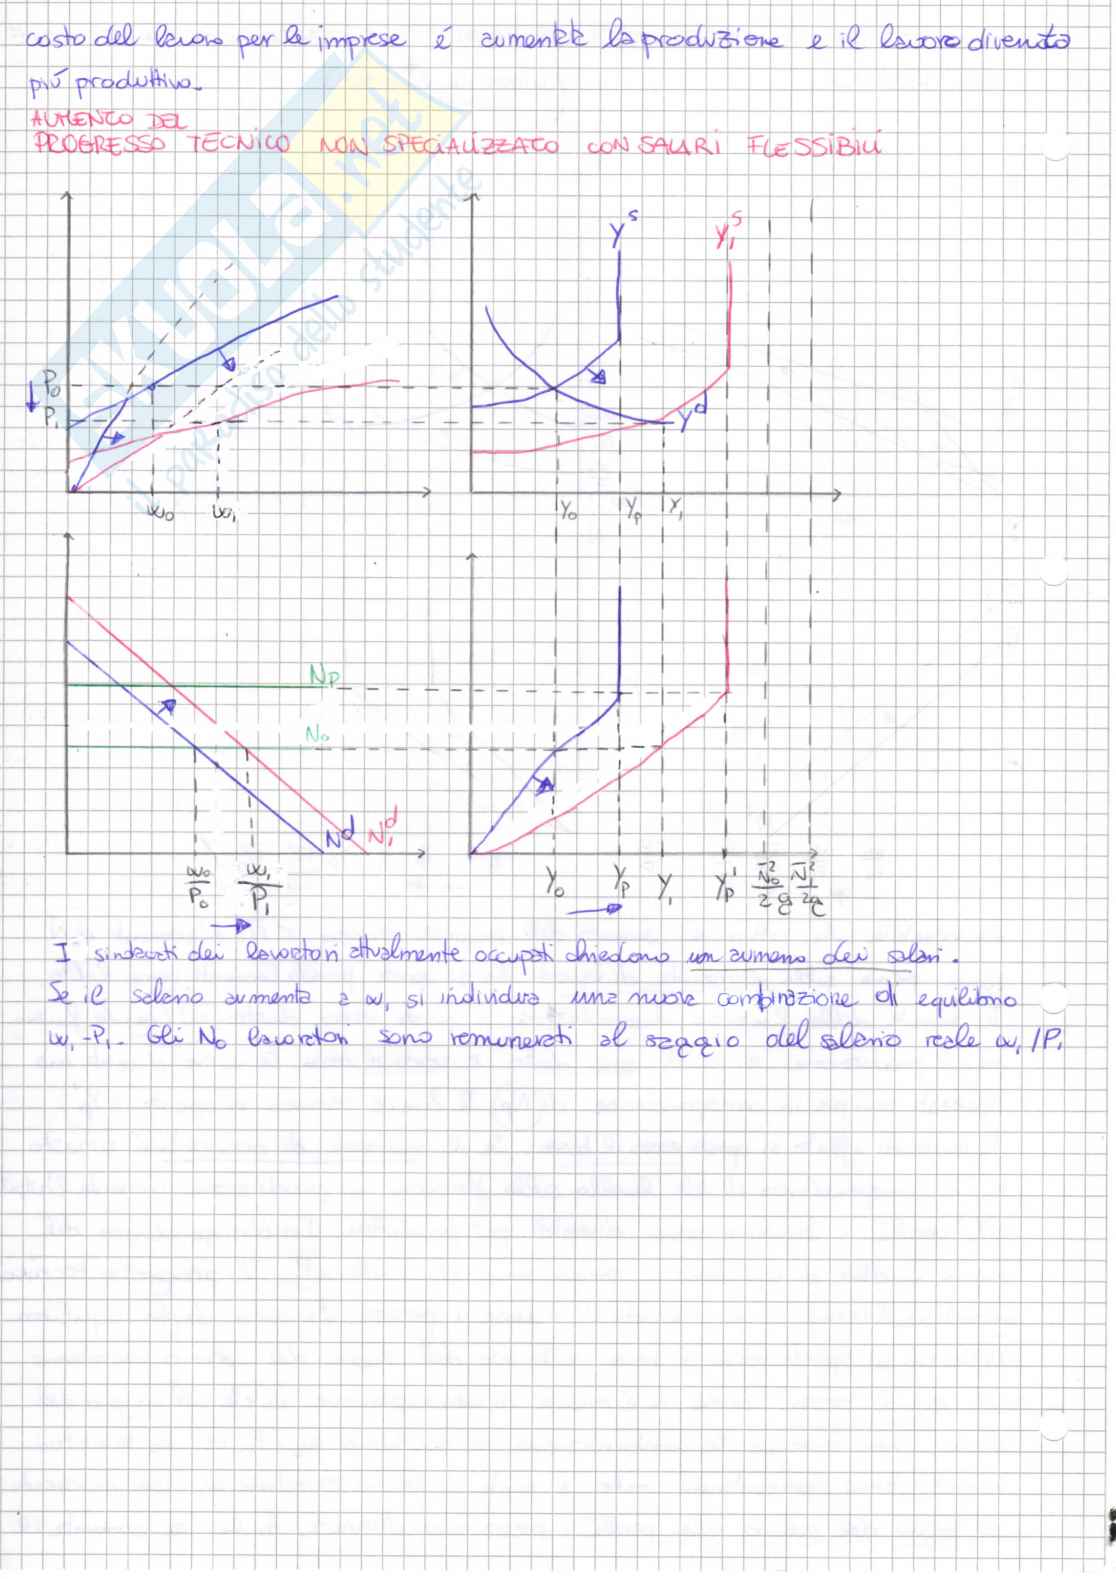 costo del lavoro per le imprese é aumentata la produzione e il lavoro diventa
più produttivo.
AUMENTO DEL
PROGRESSO TECNICO NON SPECIALIZZATO CON SALARI FLESSIBILI
SKUOLA.net
il paradiso dello studente
Yˢ Y₁ˢ
P₀
P₁
Yᵈ
w₀ w₁ Y₀ Yₚ Y₁
Nₚ
N₀
Nᵈ N₁ᵈ
w₀/P₀ w₁/P₁ Y₀ Yₚ Y₁ Yₚ' N̄₀²/2g N̄₁²/2g
I sindacati dei lavoratori attualmente occupati chiedono un aumeno dei salari.
Se il salario aumenta a w₁ si individua una nuova combinazione di equilibrio
w₁-P₁. Gli N₀ lavoratori sono remunerati al saggio del salario reale w₁/P₁